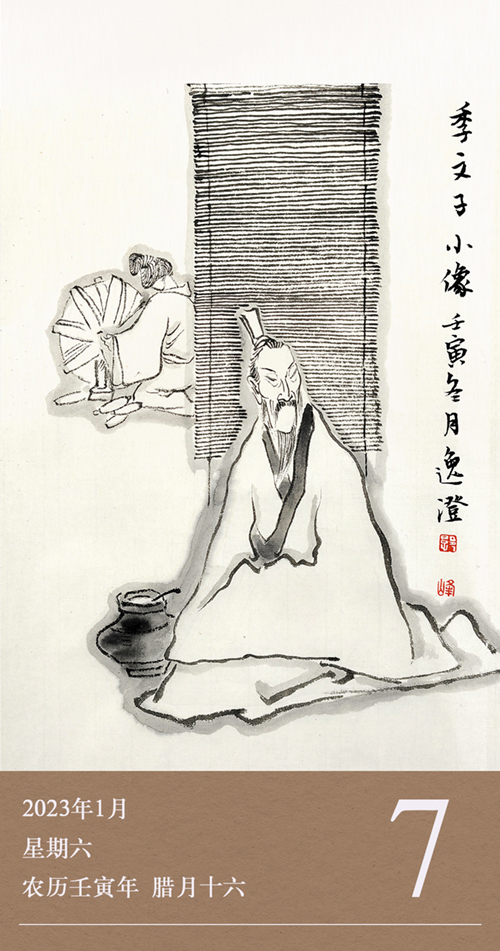 季文子小像 壬寅冬月逸澄
2023年1月
星期六
农历壬寅年 腊月十六
7